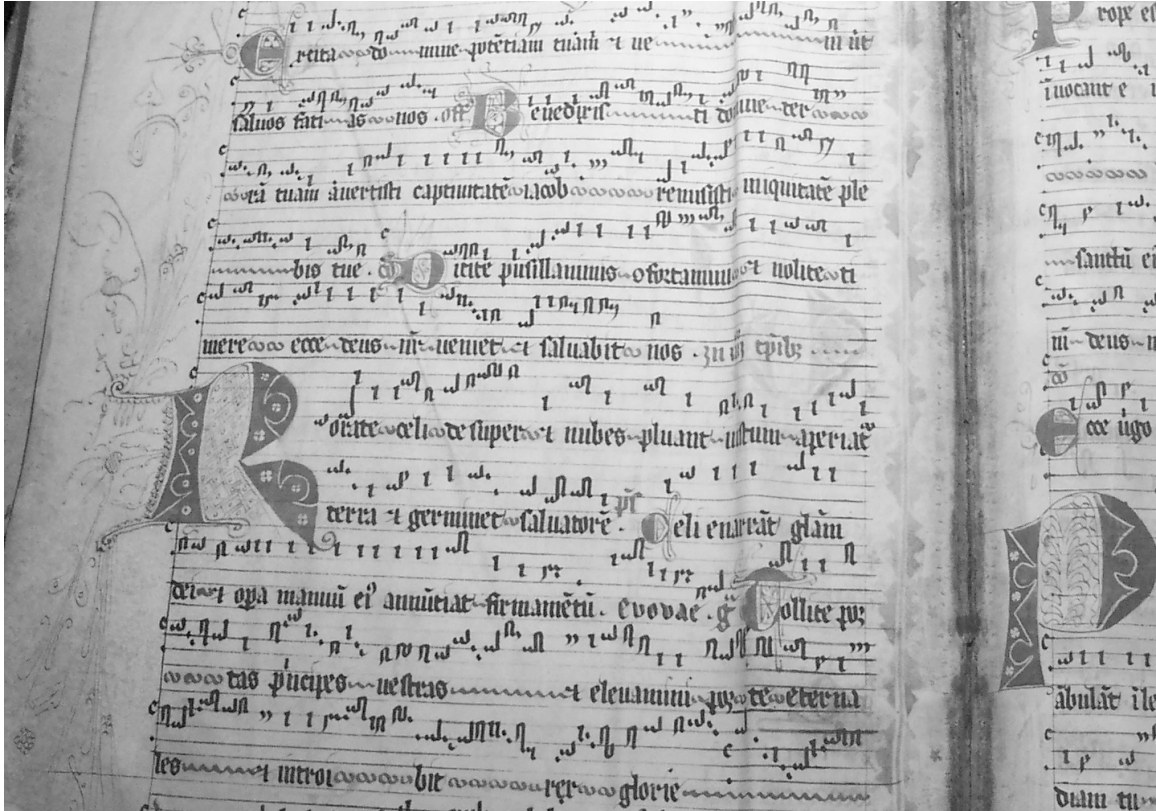 Excita do mine potētiam tuam ⁊ ve ni ut
salvos facias nos . off Benedixisti domine ter
rā tuam avertisti captivitatē iacob remisisti iniquitatē ple
bis tue . cō Dicite pusillanimis ofortamini ⁊ nolite ti
mere ecce deus nr̄ veniet ⁊ salvabit nos .
Rorate celi de super ⁊ nubes pluant iustum aperiat̄
terra ⁊ germinet salvatorē . ps̄ Celi enarrāt glām
dei ⁊ opa manuū ei⁹ annūtiat firmamētū . evovae . g̃ Tollite por
tas pncipes vestras ⁊ elevamini porte eterna
les ⁊ introi bit rex glorie
Prope es
īvocant e
sanctū ei
m deus n
cō
Ecce virgo
ābulāt ī le
diam tu